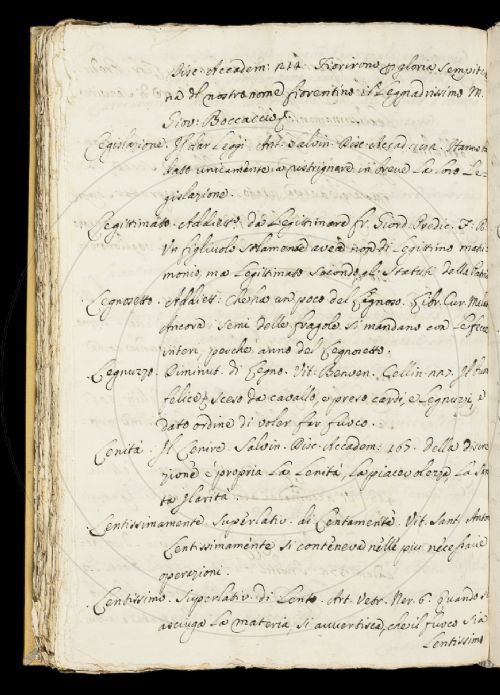 Disc. Accadem: 214. Fiorirono gloria sempit
na del nostro nome fiorentino il Leggiadrissimo M.
Giov: Boccaccio &.
Legislazione. Il dar Leggi. Ant. Salvin. Disc. Accad.
unicamente a ristrignere in breve La loro Le-
gislazione.
Legittimato. Addiett. da Legittimare fr. Giord. Predic. F. R.
Un figliuolo solamente avea non di Legittimo matri-
monio, ma Legittimato secondo gl: Statuti della Patria
Legnosetto. Addiett: Che ha un poco del Legnoso. Libr. Cur. Malat
Ancora i semi delle fragole si mandano con le fecce
interi, perchè anno del Legnosetto.
Legnuzzo. Diminut. di Legno. Vit. Benven. Cellin.
felice sceso da cavallo, e preso cardi, e Legnuzzi, e
dato ordine di voler far fuoco.
Lenità. Il Lenire. Salvin. Disc. Accadem: 165. della discre
zione è propria La Lenità, La piacevolezza, La San
ta Ilarità.
Lentissimamente. Superlativ. di Lentamente. Vit. Sant. Anton
Lentissimamente si conteneva nelle più necessarie
operazioni.
Lentissimo. Superlativ. di Lento. Art. Vetr. Ner. 6. Quando si
asciuga La materia si avvertisca, che il fuoco sia
Lentissimo